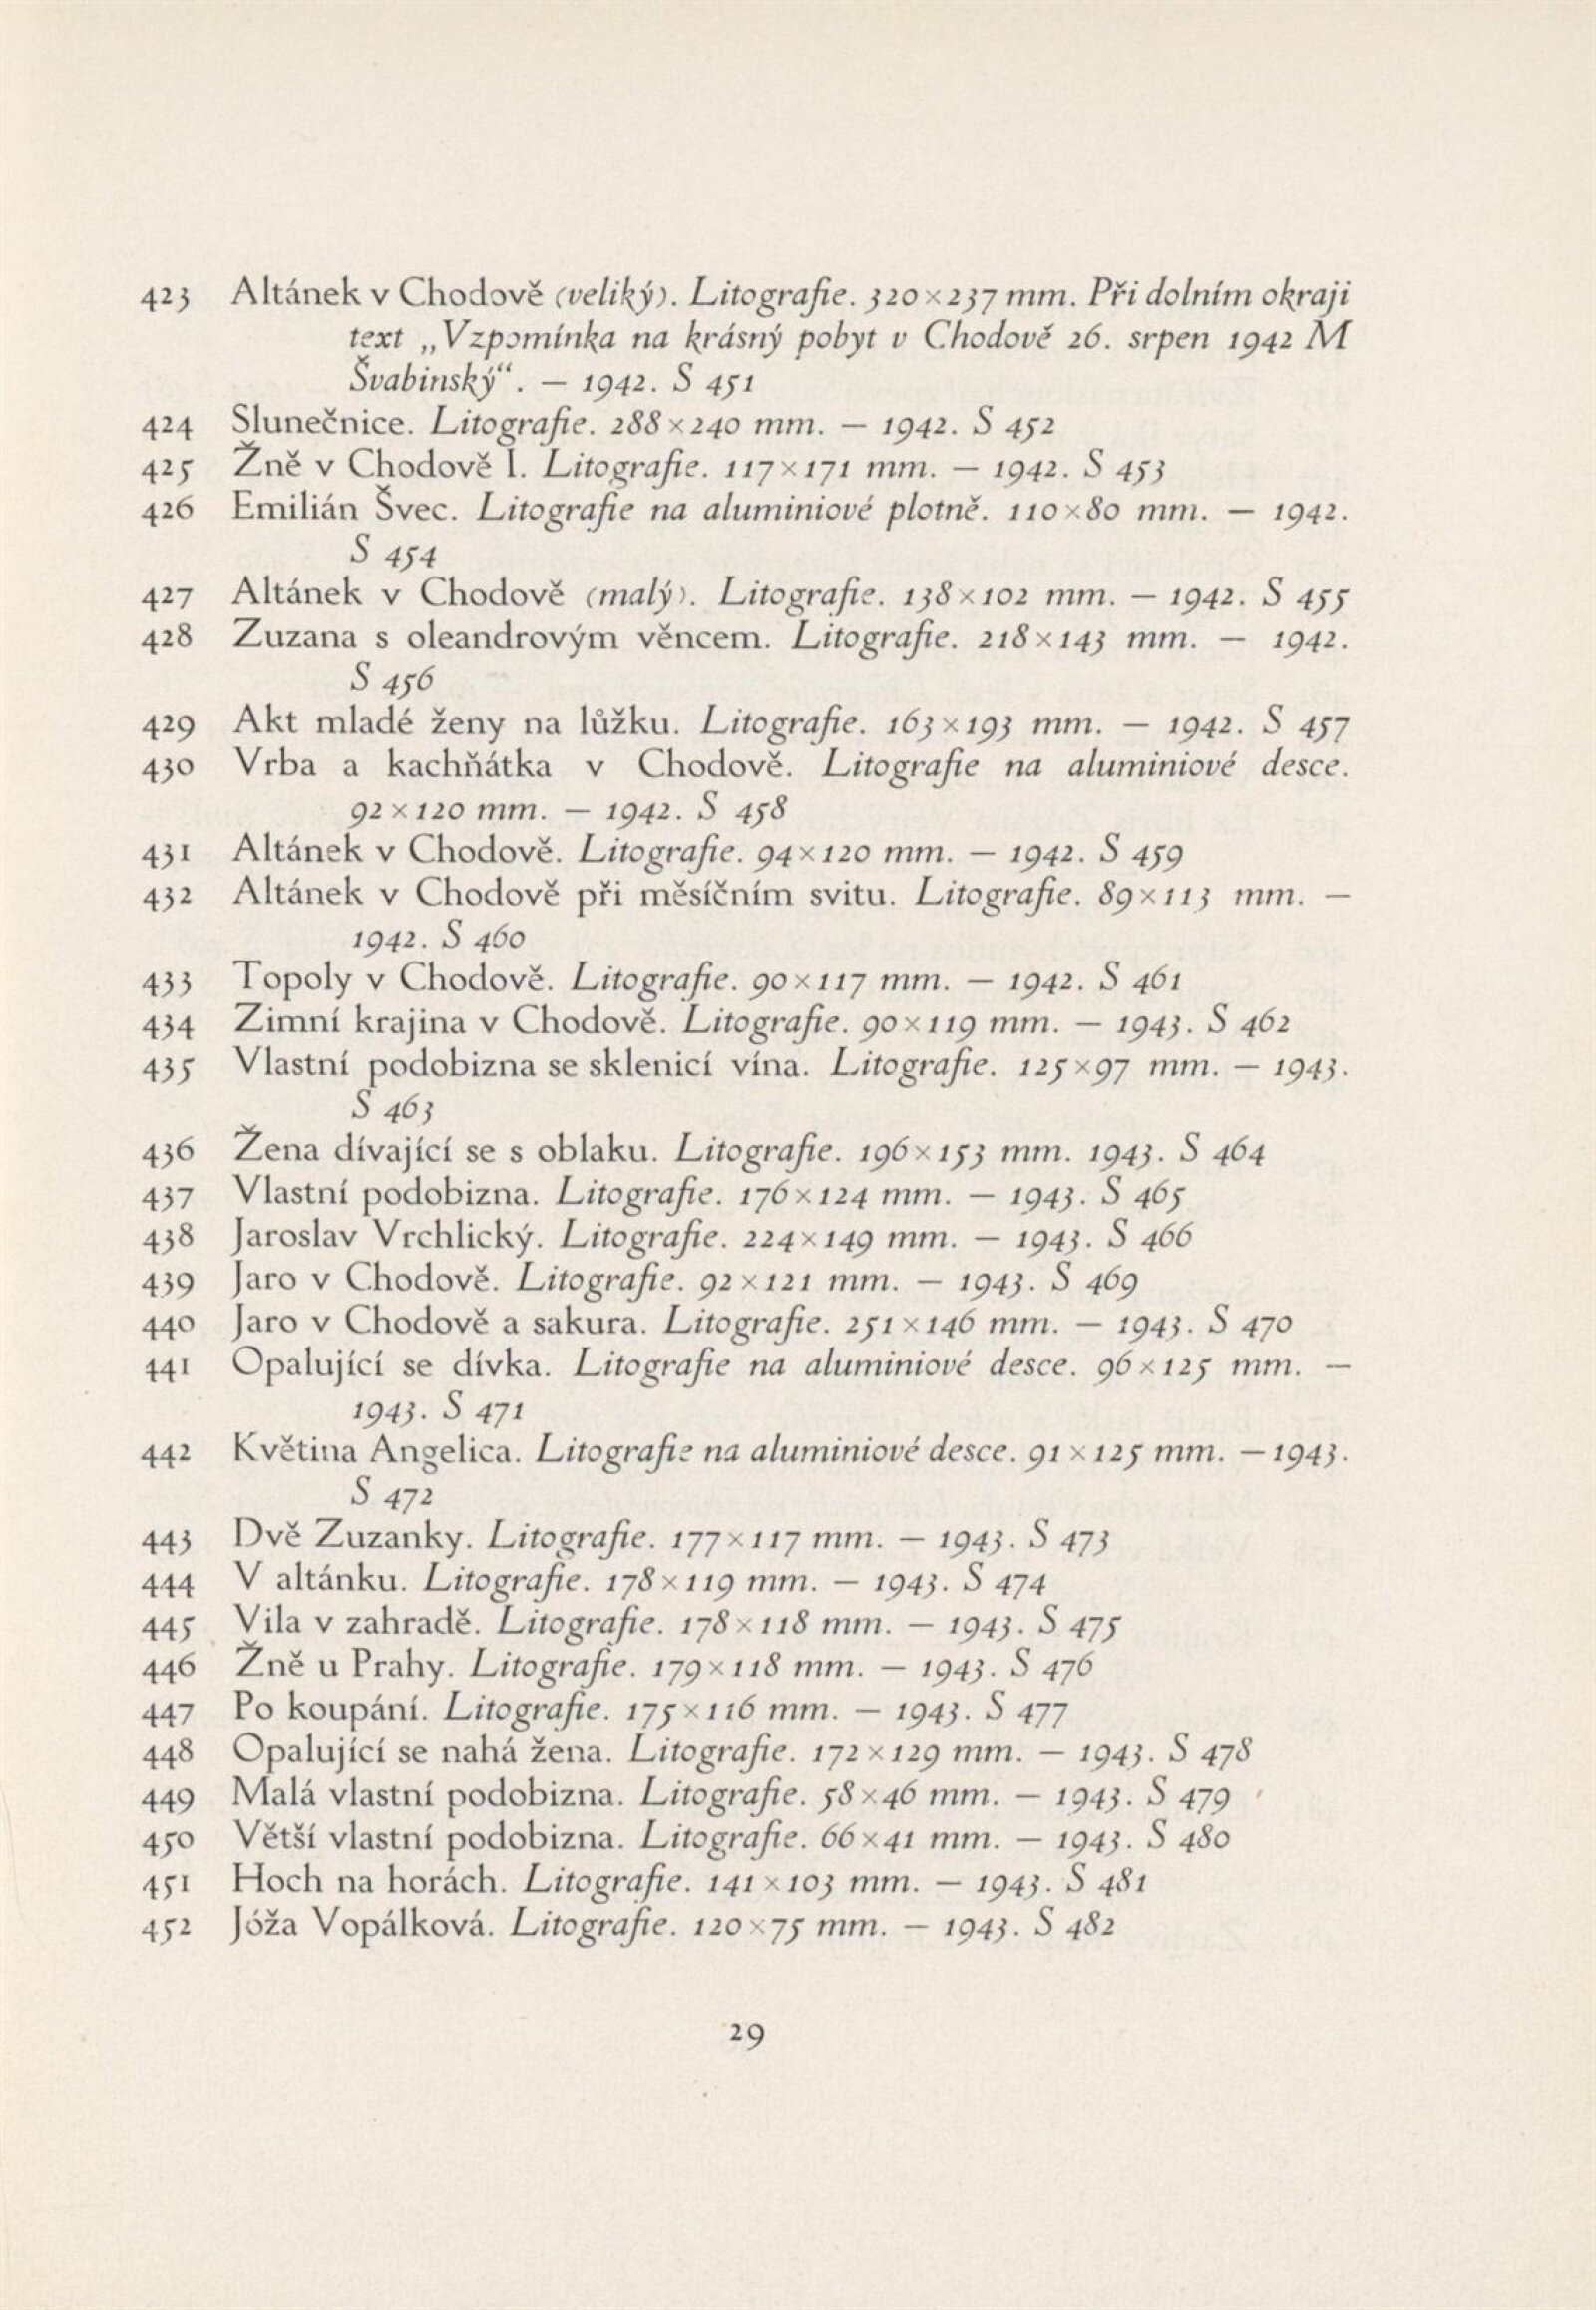 423 Altánek v Chodově (veliký). Litografie. 320×237 mm. Při dolním okraji
text „Vzpomínka na krásný pobyt v Chodově 26. srpen 1942 M
Švabinský“. — 1942. S 451
424 Slunečnice. Litografie. 288×240 mm. — 1942. S 452
425 Žně v Chodově I. Litografie. 117×171 mm. — 1942. S 453
426 Emilián Švec. Litografie na aluminiové plotně. 110×80 mm. — 1942.
S 454
427 Altánek v Chodově (malý). Litografie. 138×102 mm. — 1942. S 455
428 Zuzana s oleandrovým věncem. Litografie. 218×143 mm. — 1942.
S 456
429 Akt mladé ženy na lůžku. Litografie. 163×193 mm. — 1942. S 457
430 Vrba a kachňátka v Chodově. Litografie na aluminiové desce.
92×120 mm. — 1942. S 458
431 Altánek v Chodově. Litografie. 94×120 mm. — 1942. S 459
432 Altánek v Chodově při měsíčním svitu. Litografie. 89×113 mm. —
1942. S 460
433 Topoly v Chodově. Litografie. 90×117 mm. — 1942. S 461
434 Zimní krajina v Chodově. Litografie. 90×119 mm. — 1943. S 462
435 Vlastní podobizna se sklenicí vína. Litografie. 125×97 mm. — 1943.
S 463
436 Žena dívající se s oblaku. Litografie. 196×153 mm. 1943. S 464
437 Vlastní podobizna. Litografie. 176×124 mm. — 1943. S 465
438 Jaroslav Vrchlický. Litografie. 224×149 mm. — 1943. S 466
439 Jaro v Chodově. Litografie. 92×121 mm. — 1943. S 469
440 Jaro v Chodově a sakura. Litografie. 251×146 mm. — 1943. S 470
441 Opalující se dívka. Litografie na aluminiové desce. 96×125 mm. —
1943. S 471
442 Květina Angelica. Litografie na aluminiové desce. 91×125 mm. — 1943.
S 472
443 Dvě Zuzanky. Litografie. 177×117 mm. — 1943. S 473
444 V altánku. Litografie. 178×119 mm. — 1943. S 474
445 Vila v zahradě. Litografie. 178×118 mm. — 1943. S 475
446 Žně u Prahy. Litografie. 179×118 mm. — 1943. S 476
447 Po koupání. Litografie. 175×116 mm. — 1943. S 477
448 Opalující se nahá žena. Litografie. 172×129 mm. — 1943. S 478
449 Malá vlastní podobizna. Litografie. 58×46 mm. — 1943. S 479
450 Větší vlastní podobizna. Litografie. 66×41 mm. — 1943. S 480
451 Hoch na horách. Litografie. 141×103 mm. — 1943. S 481
452 Jóža Vopálková. Litografie. 120×75 mm. — 1943. S 482
29